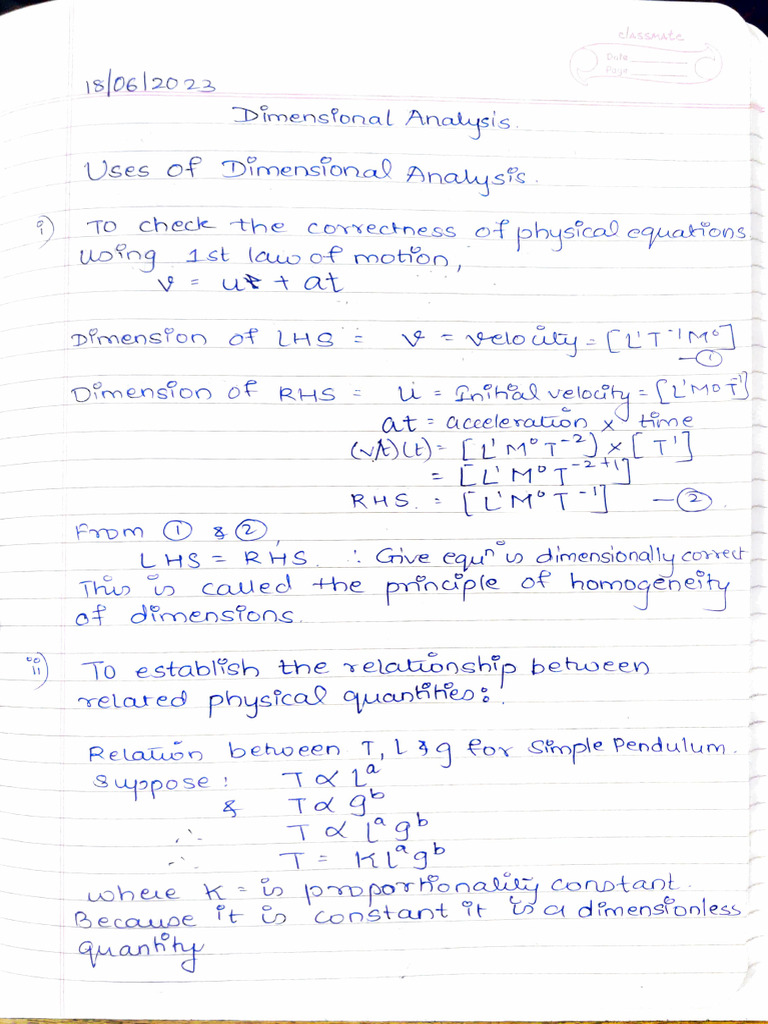 classmate
Date
Page
18/06/2023
Dimensional Analysis.
Uses of Dimensional Analysis.
i) To check the correctness of physical equations
using 1st law of motion,
v = u + at
Dimension of LHS = v = velocity = [L¹T⁻¹M⁰]
—①
Dimension of RHS = u = Initial velocity = [L¹M⁰T⁻¹]
at = acceleration × time
(v/t)(t) = [L¹M⁰T⁻²) × [T¹]
= [L¹M⁰T⁻²⁺¹]
RHS. = [L¹M⁰T⁻¹] —②
From ① & ②,
LHS = RHS. ∴ Give equⁿ is dimensionally correct
This is called the principle of homogeneity
of dimensions.
ii) To establish the relationship between
related physical quantities:
Relation between T, L & g for Simple Pendulum.
Suppose: T ∝ Lᵃ
& T ∝ gᵇ
∴ T ∝ Lᵃgᵇ
∴ T = KLᵃgᵇ
where K = is proportionality constant.
Because it is constant it is a dimensionless
quantity